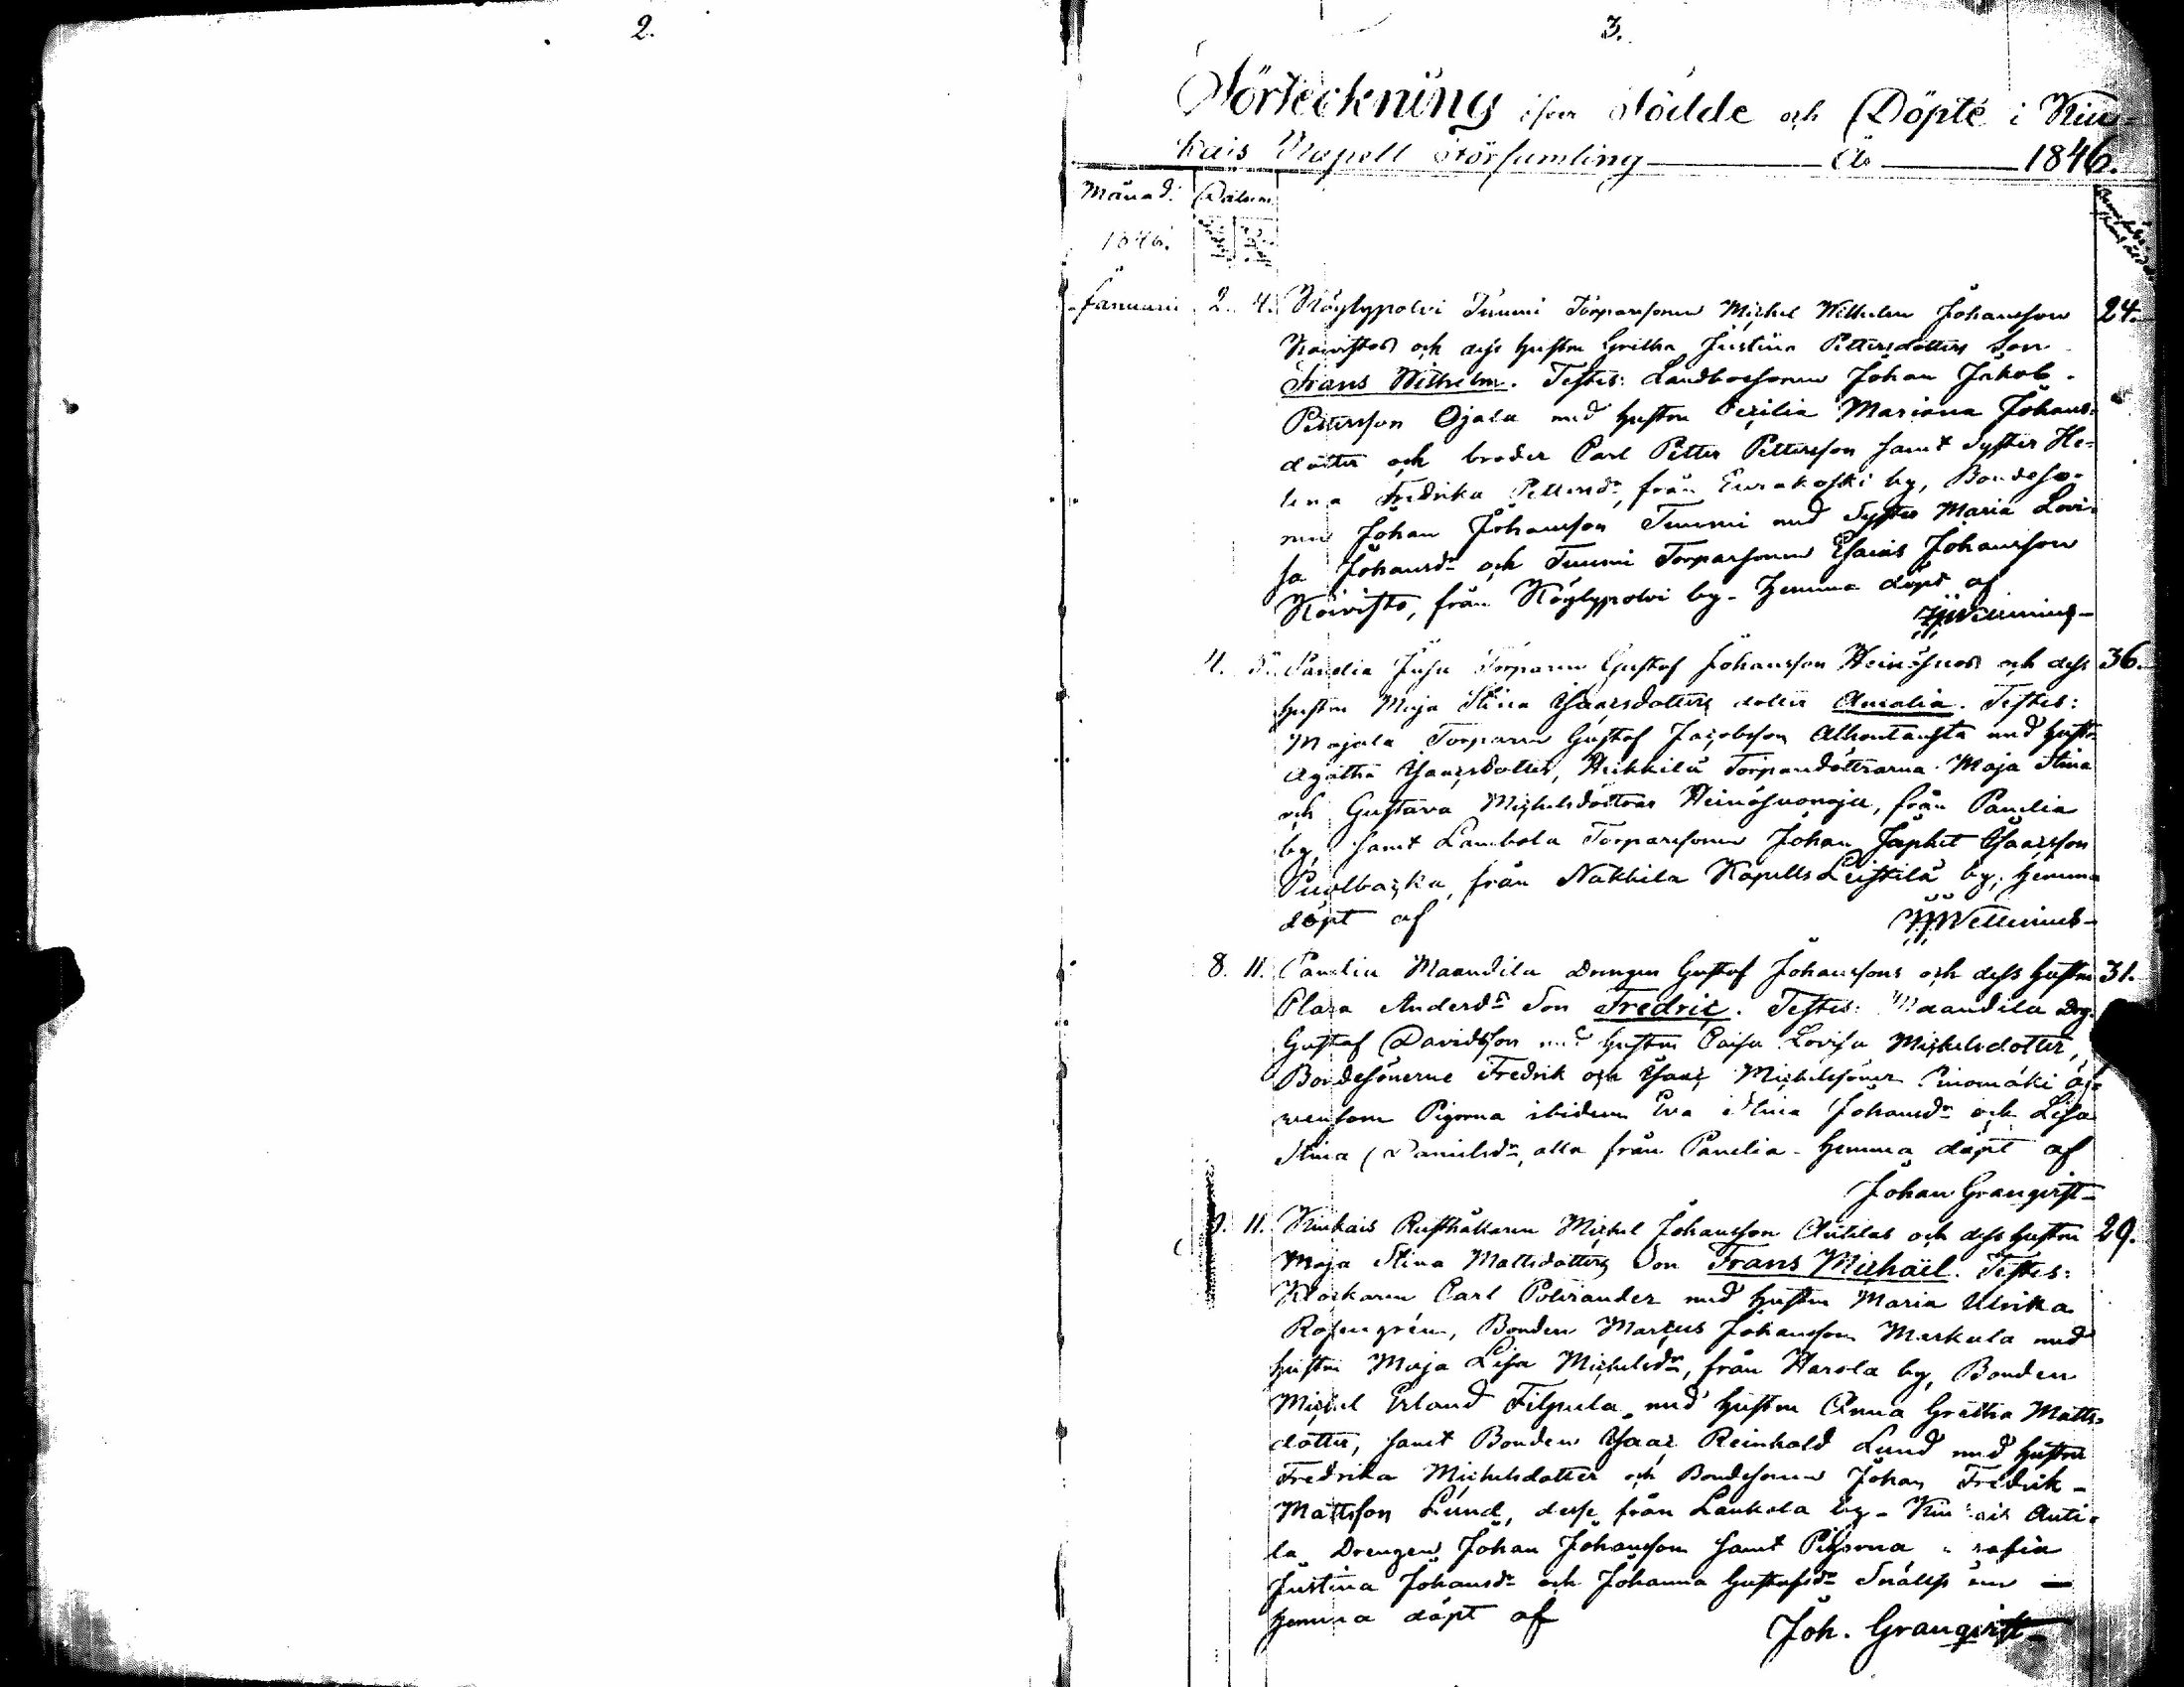 2.
3.
Förteckning öfver Födde och Döpte i Kiu-
kais Kapell Församling Åo 1846.
Månad. Datum
1846.
Januarii 2. 4. Köylypolvi Tuomi Torparesonen Michel Wilhelm Johansson 24.
Koivistos och dess hustru Gretha Justina Pettersdotters Son
Frans Wilhelm. Testes: Landbosonen Johan Jakob
Pettersson Ojala med hustru Cecilia Mariana Johans-
dotter och broder Carl Petter Pettersson samt Syster He-
lena Fredrika Pettersdr från Eurakoski by, Bondeso-
nen Johan Johansson Tuomi med Syster Maria Lovi-
sa Johansdr och Tuomi Torparsonen Esaias Johansson
Koivisto, från Köylypolvi by. Hemma döpt af
4. 5. Panelia Jusu Torparen Gustaf Johansson Heinösuos och dess 36.
hustru Maja Stina Isaacsdotters dotter Amalia. Testes:
Torparen Gustaf Jacobsson Alhontausta med hustru
Agatha Isaacsdotter, Heikkilä Torparedöttrarna Maja Stina
och Gustava Michelsdöttrar Heinösuonoja, från Panelia
by, samt Lambola Torparesonen Johan Japhet Isaacsson
från Nakkila Kapells Leistilä by; hemma
döpt af
8. 11. Panelia Maandila Drengen Gustaf Johanssons och dess hustru 31.
Clara Andersdr Son Fredric. Testes: Maandila Drg.
Gustaf Davidsson med hustru Caisa Lovisa Michelsdotter,
Bondesönerne Fredrik och Isaac Michelssöner Pinomäki äf-
vensom Pigorna ibidem Eva Stina Johansdr och Lisa
Stina Danielsdr, alla från Panelia. Hemma döpt af
Johan Granqvist
9. 11. Kiukais Rusthållaren Michel Johansson Anttilas och dess hustru 29.
Maja Stina Mattsdotters Son Frans Michaël. Testes:
Klockaren Carl Polviander med hustru Maria Ulrika
Rosengrén, Bonden Marcus Johansson Markula med
hustru Maja Lisa Michelsdr, från Harola by, Bonden
Michel Erland Filpula, med hustru Anna Gretha Matts-
dotter, samt Bonden Isaac Reinhold Lund med hustru
Fredrika Michelsdotter och Bondesonen Johan Fredrik
Mattsson Lund, desse från Laukola by. Kiukais Anti-
la Drengen Johan Johansson samt Pigorna
Justina Johansdr och Johanna Gustafsdr
hemma döpt af Joh. Granqvist